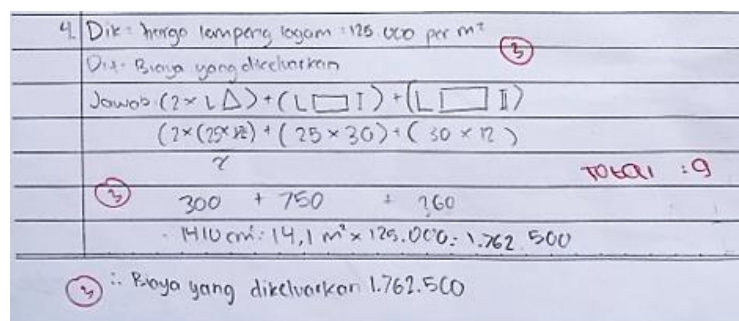 4. Dik : harga lempeng logam : 125.000 per m²
3
Dit : Biaya yang dikeluarkan
Jawab : (2 × L △) + (L ▭ I) + (L ▭ II)
(2 × (25 × 12) + (25 × 30) + (30 × 12)
2
Total : 9
3
300 + 750 + 360
1410 cm² : 14,1 m² × 125.000 : 1.762.500
3 ∴ Biaya yang dikeluarkan 1.762.500